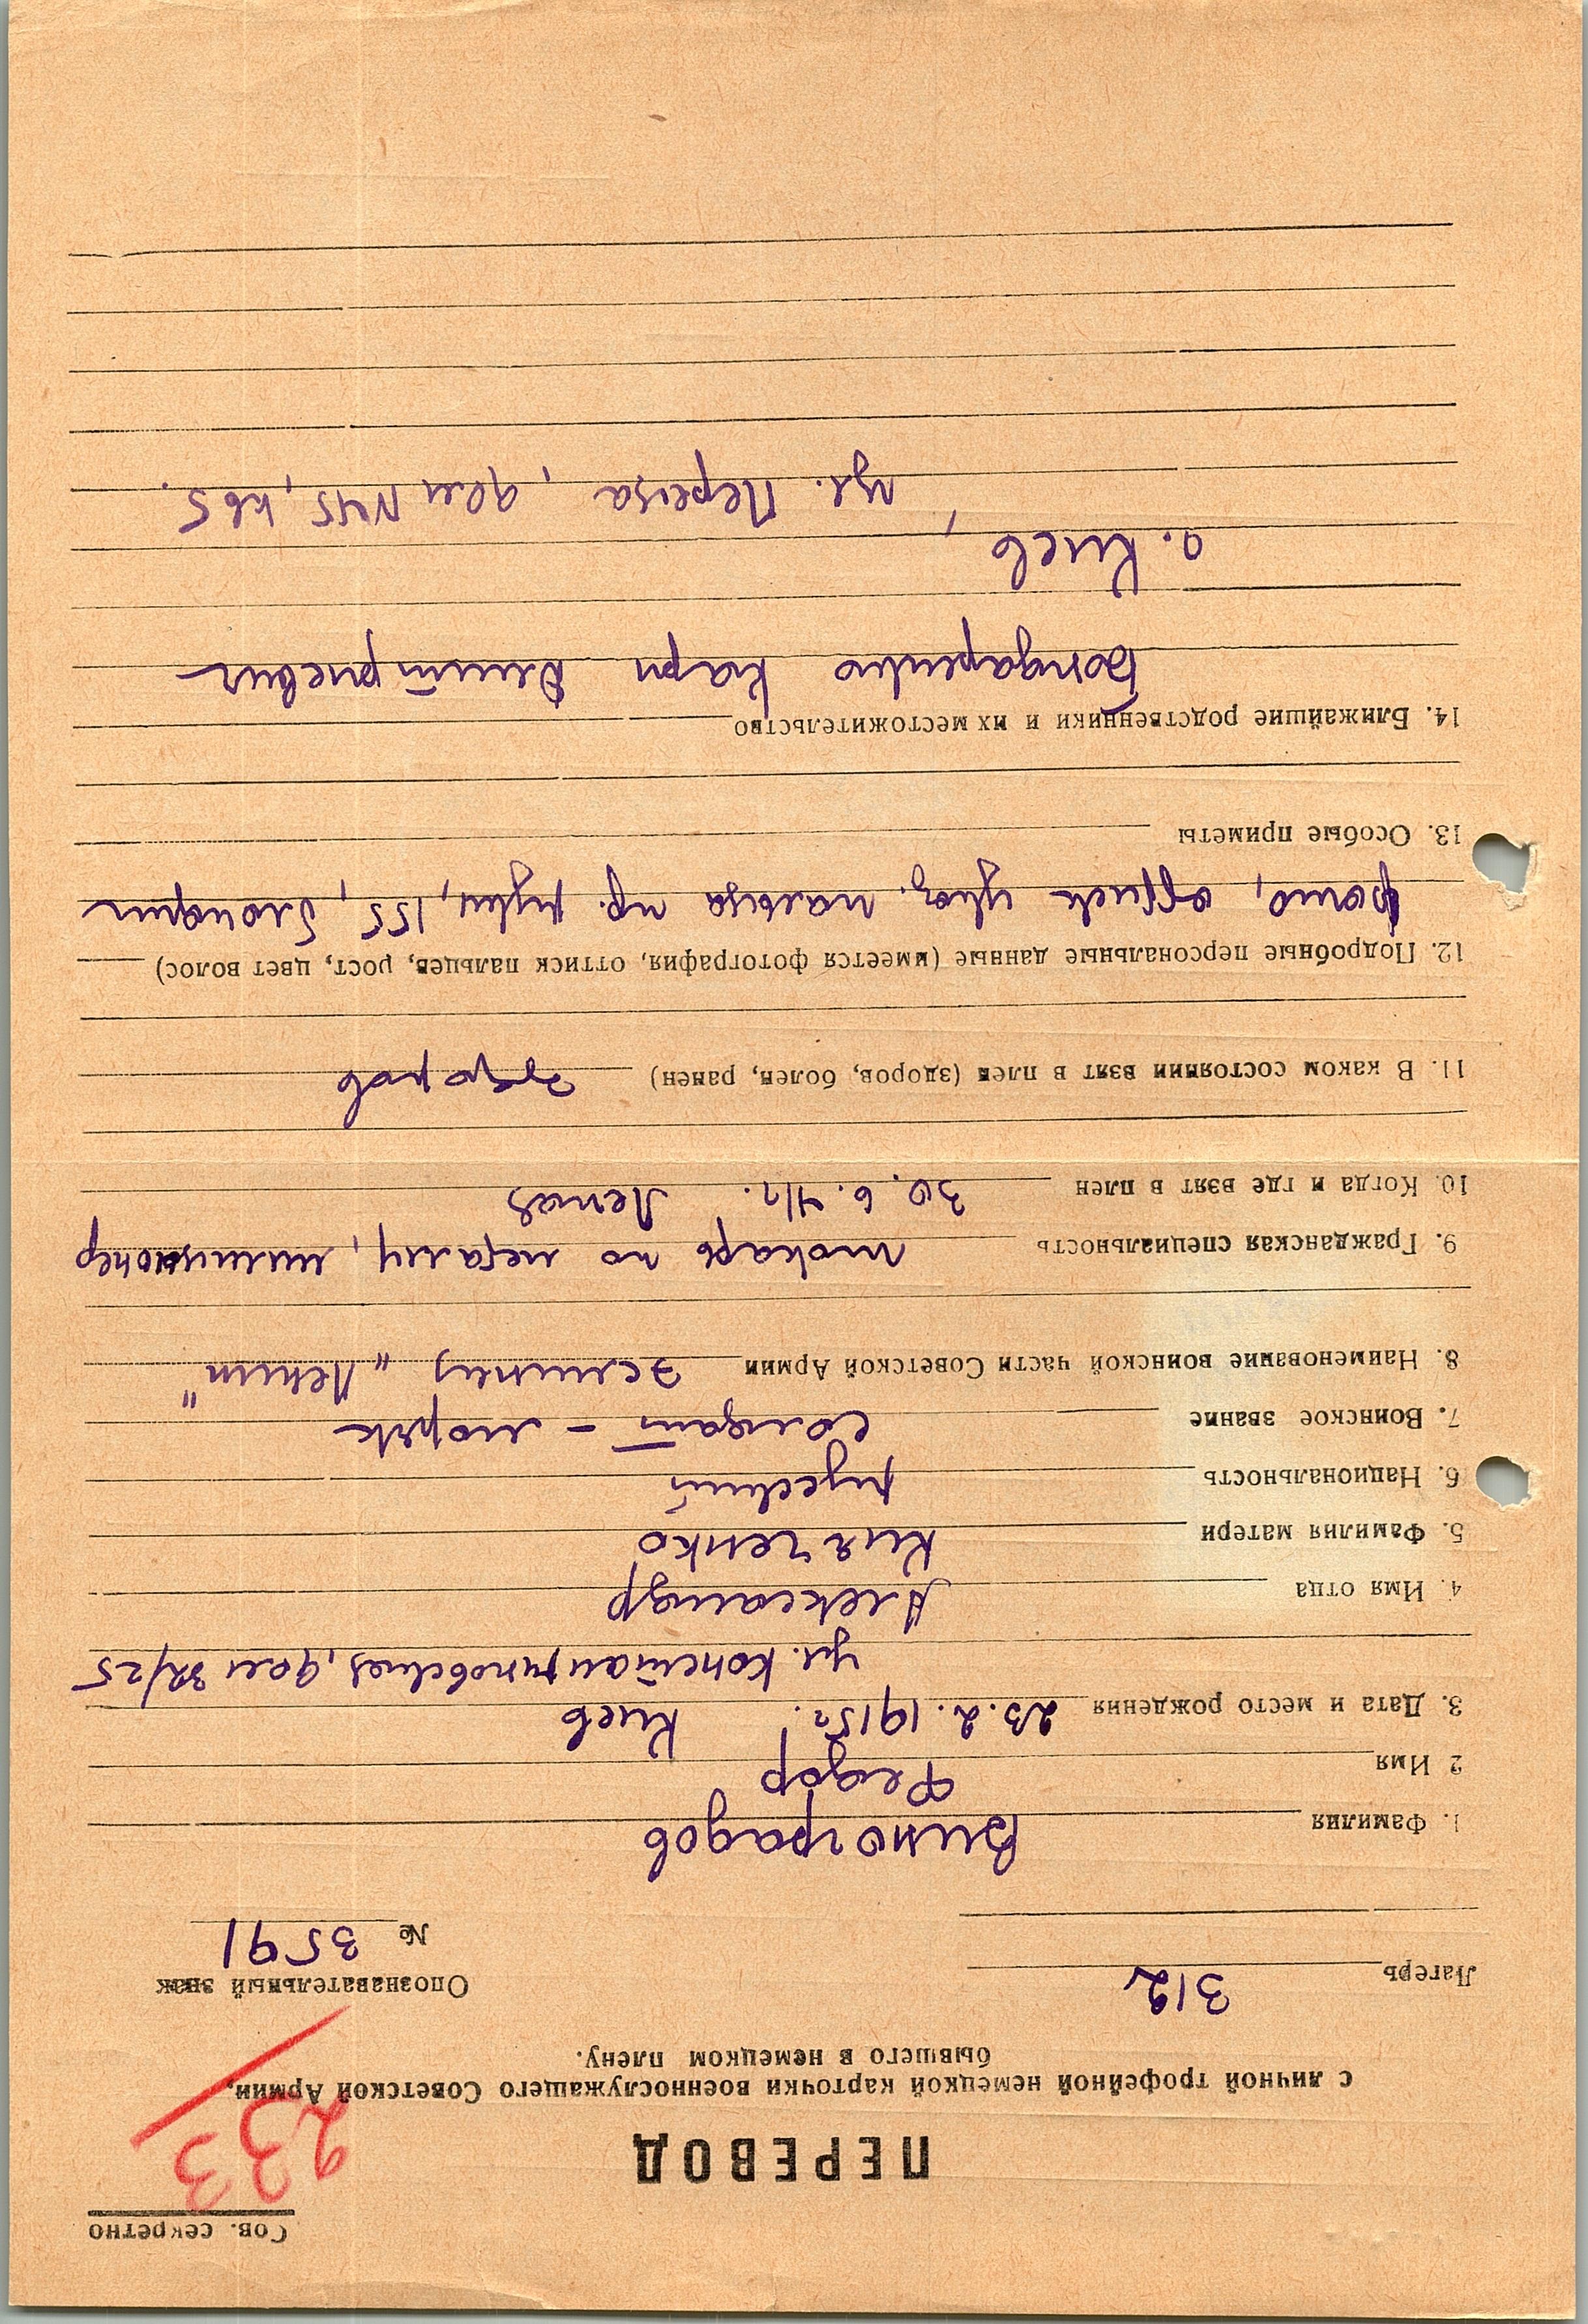 Сов. секретно
233
ПЕРЕВОД
с личной трофейной немецкой карточки военнослужащего Советской Армии,
бывшего в немецком плену.
Лагерь 312
Опознавательный знак
№ 3591
1. Фамилия Виноградов
2 Имя Федор
3. Дата и место рождения 23.2.1915г. Киев
ул. Константиновская, дом 32/25
4. Имя отца Александр
5. Фамилия матери Книченко
6. Национальность русский
7. Воинское звание Солдат - моряк
8. Наименование воинской части Советской Армии Эсминец "Ленин"
9. Гражданская специальность токарь по металу, милиционер
10. Когда и где взят в плен 30.6.41г.
11. В каком состоянии взят в плен (здоров, болен, ранен) здоров
12. Подробные персональные данные (имеется фотография, оттиск пальцев, рост, цвет волос)
фото, оттиск указ. пальца пр. руки, 155, блондин
13. Особые приметы
14. Ближайшие родственники и их местожительство
Бондаренко Карп Дмитриевич
г. Киев,
ул. Переца, дом N45, кв 5.